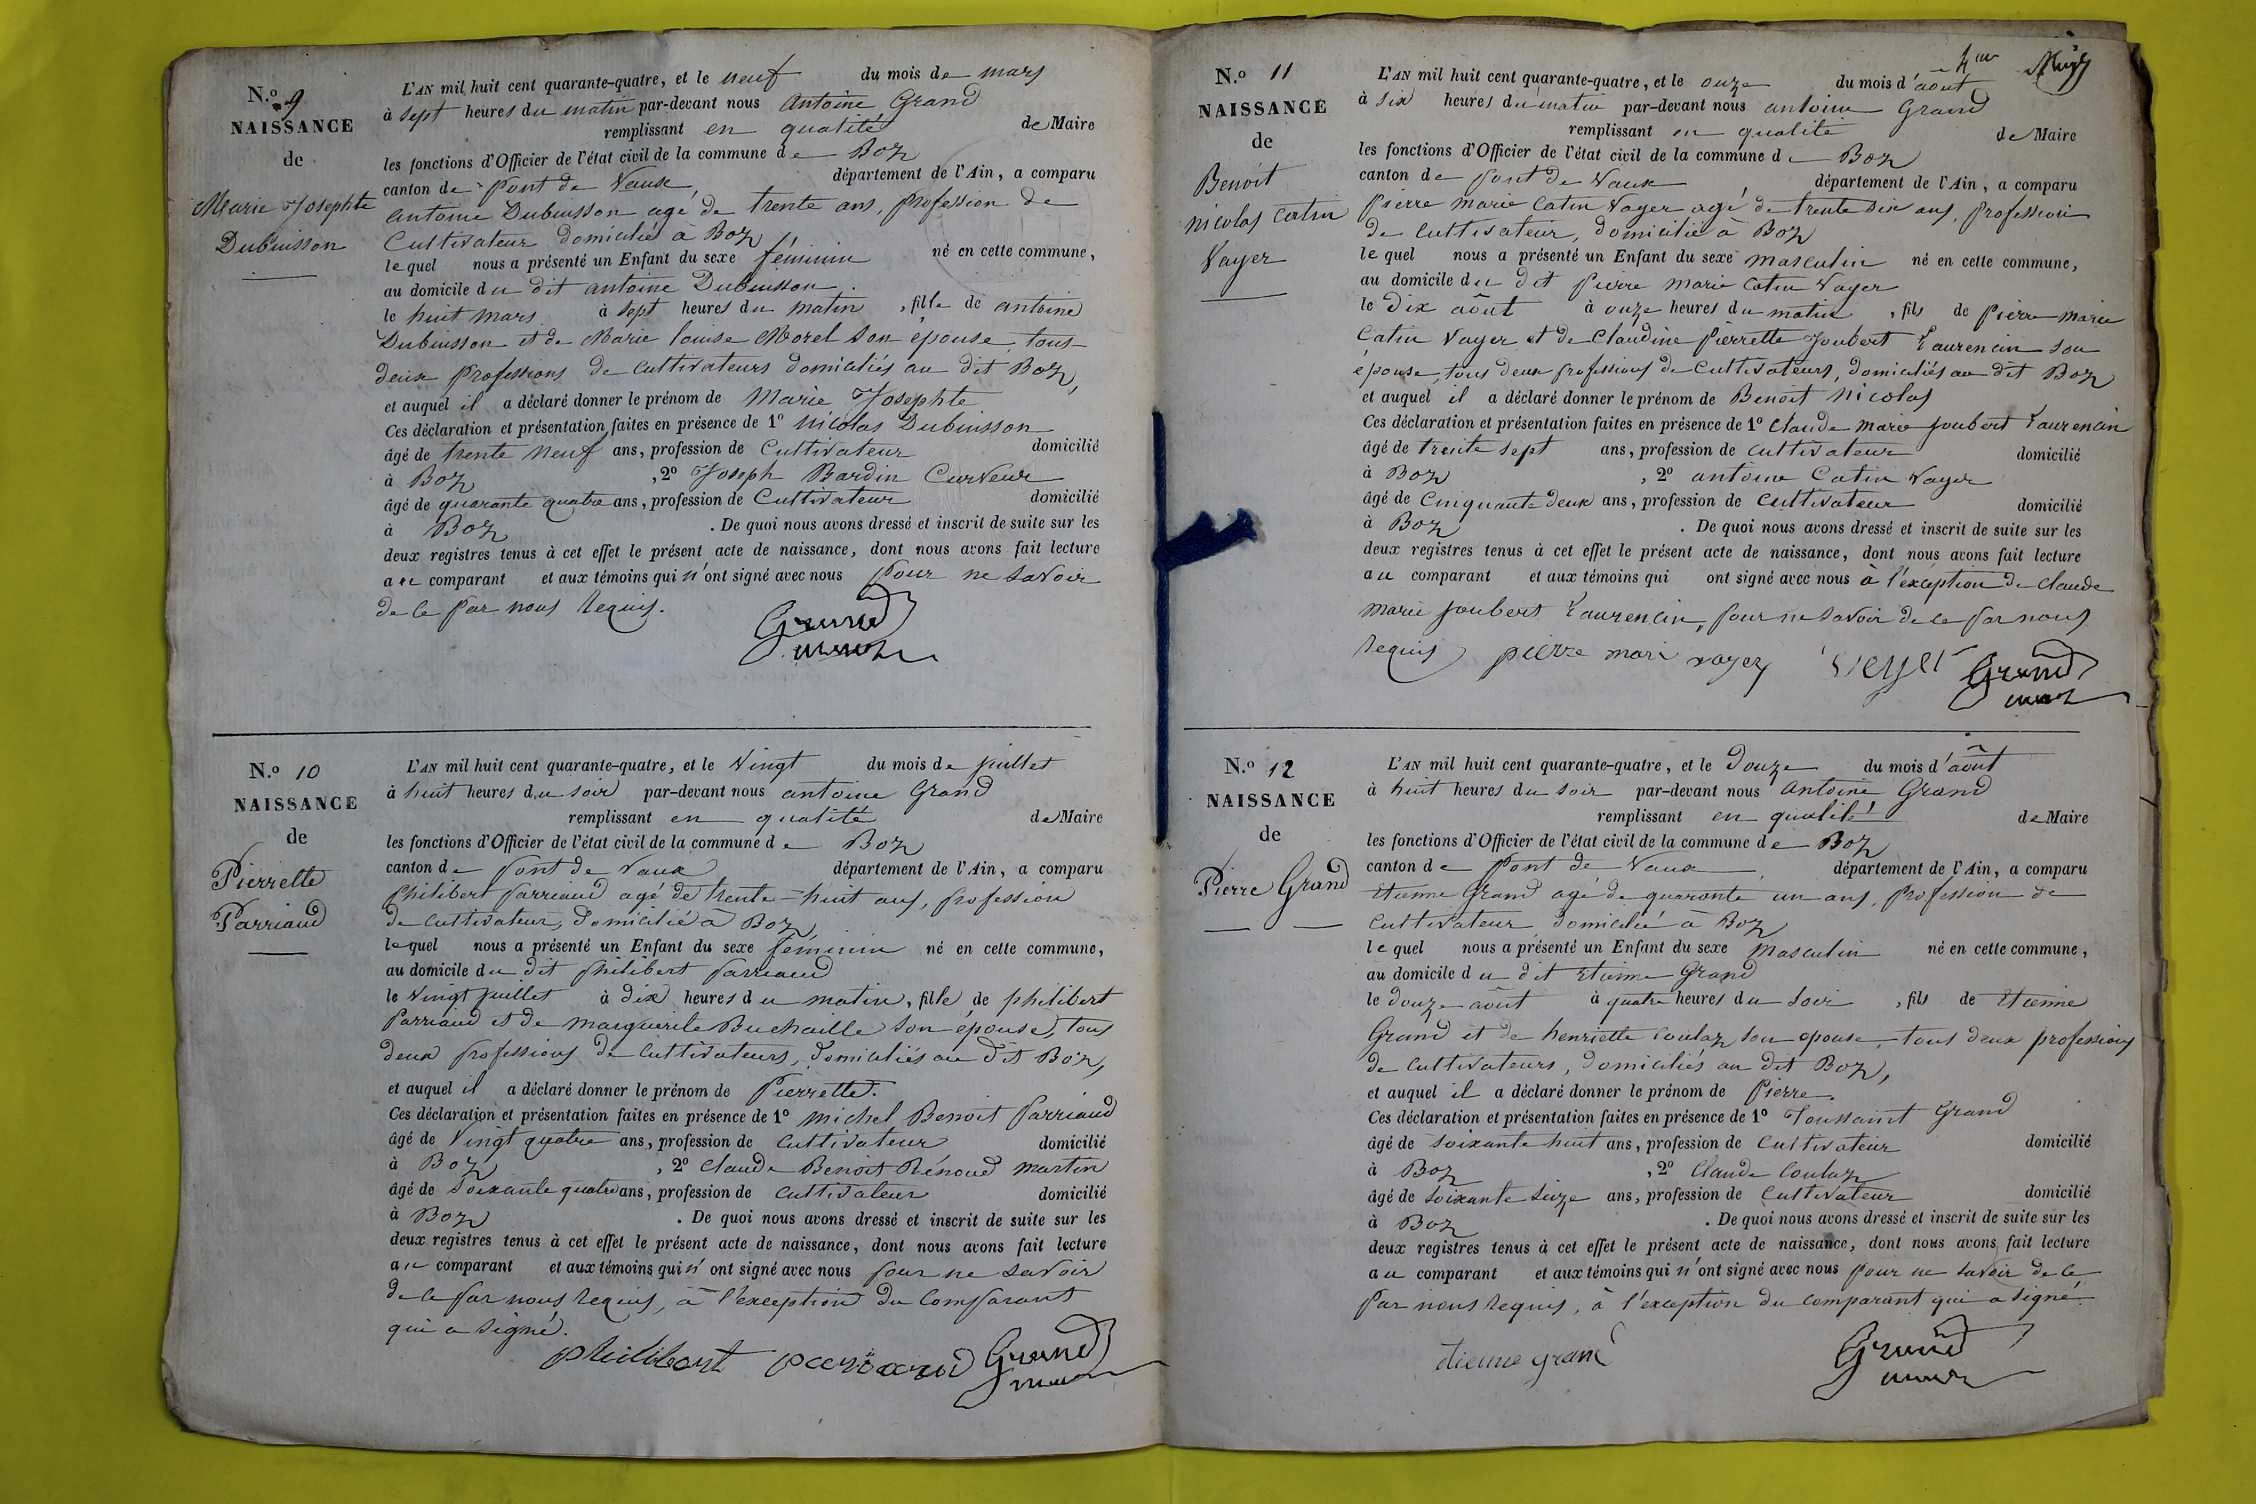 N.º 9
NAISSANCE
de
Marie Josephte
Dubuisson
L'AN mil huit cent quarante-quatre, et le neuf du mois de mars
à sept heures du matin par-devant nous Antoine Grand
remplissant en qualité de Maire
les fonctions d'Officier de l'état civil de la commune de Boz
canton de Pont de Vaux, département de l'Ain, a comparu
antoine Dubuisson agé de trente ans, profession de
Cultivateur domicilié à Boz
lequel nous a présenté un Enfant du sexe féminin né en cette commune,
au domicile du dit antoine Dubuisson.
le huit mars à sept heures du matin, fille de antoine
Dubuisson et de Marie louise Morel son épouse, tous
deux professions de cultivateurs domiciliés au dit Boz,
et auquel il a déclaré donner le prénom de Marie Josephte
Ces déclaration et présentation faites en présence de 1º nicolas Dubuisson
âgé de trente neuf ans, profession de Cultivateur domicilié
à Boz, 2º Joseph Bardin Curveur
âgé de quarante quatre ans, profession de Cultivateur domicilié
à Boz. De quoi nous avons dressé et inscrit de suite sur les
deux registres tenus à cet effet le présent acte de naissance, dont nous avons fait lecture
au comparant et aux témoins qui n'ont signé avec nous pour ne savoir
de ce par nous requis.
Grand
N.º 10
NAISSANCE
de
Pierrette
Parriaud
L'AN mil huit cent quarante-quatre, et le vingt du mois de juillet
à huit heures du soir par-devant nous antoine Grand
remplissant en qualité de Maire
les fonctions d'Officier de l'état civil de la commune de Boz
canton de Pont de Vaux département de l'Ain, a comparu
philibert parriaud agé de trente-huit ans, profession
de cultivateur, domicilié à Boz,
lequel nous a présenté un Enfant du sexe féminin né en cette commune,
au domicile du dit philibert parriaud
le vingt juillet à dix heures du matin, fille de philibert
Parriaud et de marguerite Buchaille son épouse, tous
deux professions de cultivateurs, domiciliés au dit Boz,
et auquel il a déclaré donner le prénom de Pierrette.
Ces déclaration et présentation faites en présence de 1º michel Benoit Parriaud
âgé de vingt quatre ans, profession de cultivateur domicilié
à Boz, 2º Claude Benoit Rénoud martin
âgé de soixante quatre ans, profession de cultivateur domicilié
à Boz. De quoi nous avons dressé et inscrit de suite sur les
deux registres tenus à cet effet le présent acte de naissance, dont nous avons fait lecture
au comparant et aux témoins qui n'ont signé avec nous pour ne savoir
de ce par nous requis, à l'exception du comparant
qui a signé.
philibert parriaud Grand
N.º 11
NAISSANCE
de
Benoit
nicolas catin
Vayer
L'AN mil huit cent quarante-quatre, et le onze du mois d'aout
à six heures du matin par-devant nous antoine Grand
remplissant en qualité de Maire
les fonctions d'Officier de l'état civil de la commune de Boz
canton de pont de Vaux département de l'Ain, a comparu
pierre marie catin Vayer agé de trente six ans, profession
de cultivateur, domicilié à Boz
lequel nous a présenté un Enfant du sexe masculin né en cette commune,
au domicile du dit pierre marie catin Vayer
le dix août à onze heures du matin, fils de pierre marie
Catin Vayer et de Claudine pierrette Joubert Laurencin son
épouse, tous deux professions de cultivateurs, domiciliés au dit Boz
et auquel il a déclaré donner le prénom de Benoit nicolas
Ces déclaration et présentation faites en présence de 1º claude marie joubert Laurencin
âgé de trente sept ans, profession de cultivateur domicilié
à Boz, 2º antoine Catin Vayer
âgé de Cinquante deux ans, profession de cultivateur domicilié
à Boz. De quoi nous avons dressé et inscrit de suite sur les
deux registres tenus à cet effet le présent acte de naissance, dont nous avons fait lecture
au comparant et aux témoins qui ont signé avec nous à l'exception de claude
marie joubert Laurencin, pour ne savoir de ce par nous
requis pierre mari vayer Grand
N.º 12
NAISSANCE
de
Pierre Grand
L'AN mil huit cent quarante-quatre, et le douze du mois d'août
à huit heures du soir par-devant nous Antoine Grand
remplissant en qualité de Maire
les fonctions d'Officier de l'état civil de la commune de Boz
canton de Pont de Vaux département de l'Ain, a comparu
etienne Grand agé de quaronte un ans, profession de
cultivateur domicilié à Boz
lequel nous a présenté un Enfant du sexe masculin né en cette commune,
au domicile du dit etienne Grand
le douze août à quatre heures du soir, fils de etienne
Grand et de henriette coulaz son epouse, tous deux professions
de cultivateurs, domiciliés au dit Boz,
et auquel il a déclaré donner le prénom de Pierre
Ces déclaration et présentation faites en présence de 1º Toussaint Grand
âgé de soixante huit ans, profession de cultivateur domicilié
à Boz, 2º Claude Coulaz
âgé de soixante seize ans, profession de cultivateur domicilié
à Boz. De quoi nous avons dressé et inscrit de suite sur les
deux registres tenus à cet effet le présent acte de naissance, dont nous avons fait lecture
au comparant et aux témoins qui n'ont signé avec nous pour ne savoir de ce
par nous requis, à l'exception du comparant qui a signé.
etienne grand Grand